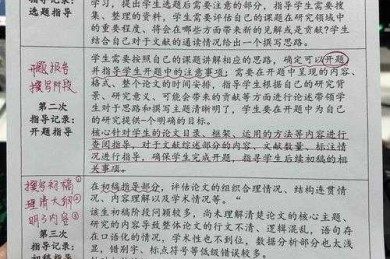 指导记录:
选题指导
学习，提出选题后需要注意的部分，指导学生需要搜
集、整理的资料，学生需要评估自己的课题在研究领域中
的重要程度，将会在哪些方面带来新的见解或是贡献?学生
结合自己对于文献的通读情况给出一个撰写思路。
开题报告
撰写阶段
第二次
指导记录:
开题指导
学生需要按照自己的课题讲解相应的思路，确定可以开题
并指导学生开题中的注意事项；需要在开题中呈现的内容、
格式、整个论文的时间安排，指导学生根据自己的研究背
景、研究意义、可能会带来的贡献等方面进行论述引领学
生对于思路和撰写主题清晰明了，学生要在开题中为自己
的研究提供一个明确的目标。
核心针对学生的论文目录、框架、运用的方法等内容进行
查阅指导，对于文献综述部分的内容、文献数量、标注情
况进行指导，确保学生完成开题，指导学生后续初稿的相
关事项。
撰写初稿①
理清大纲②
明了内容③
第三次
指导记录:
初稿指导
在初稿指导部分，评估论文的组织合理情况、结构连贯情
况、内容理解以及学术情况等。"
该生初稿阶段问题较多，尚未理清楚论文的核心主题、
研究的内容导致整体论文的行文不清、逻辑混乱，语句存
在口语化的情况，学术性也不到位，数据分析部分也太浅
显，错别字、标点符号等低级错误较多。